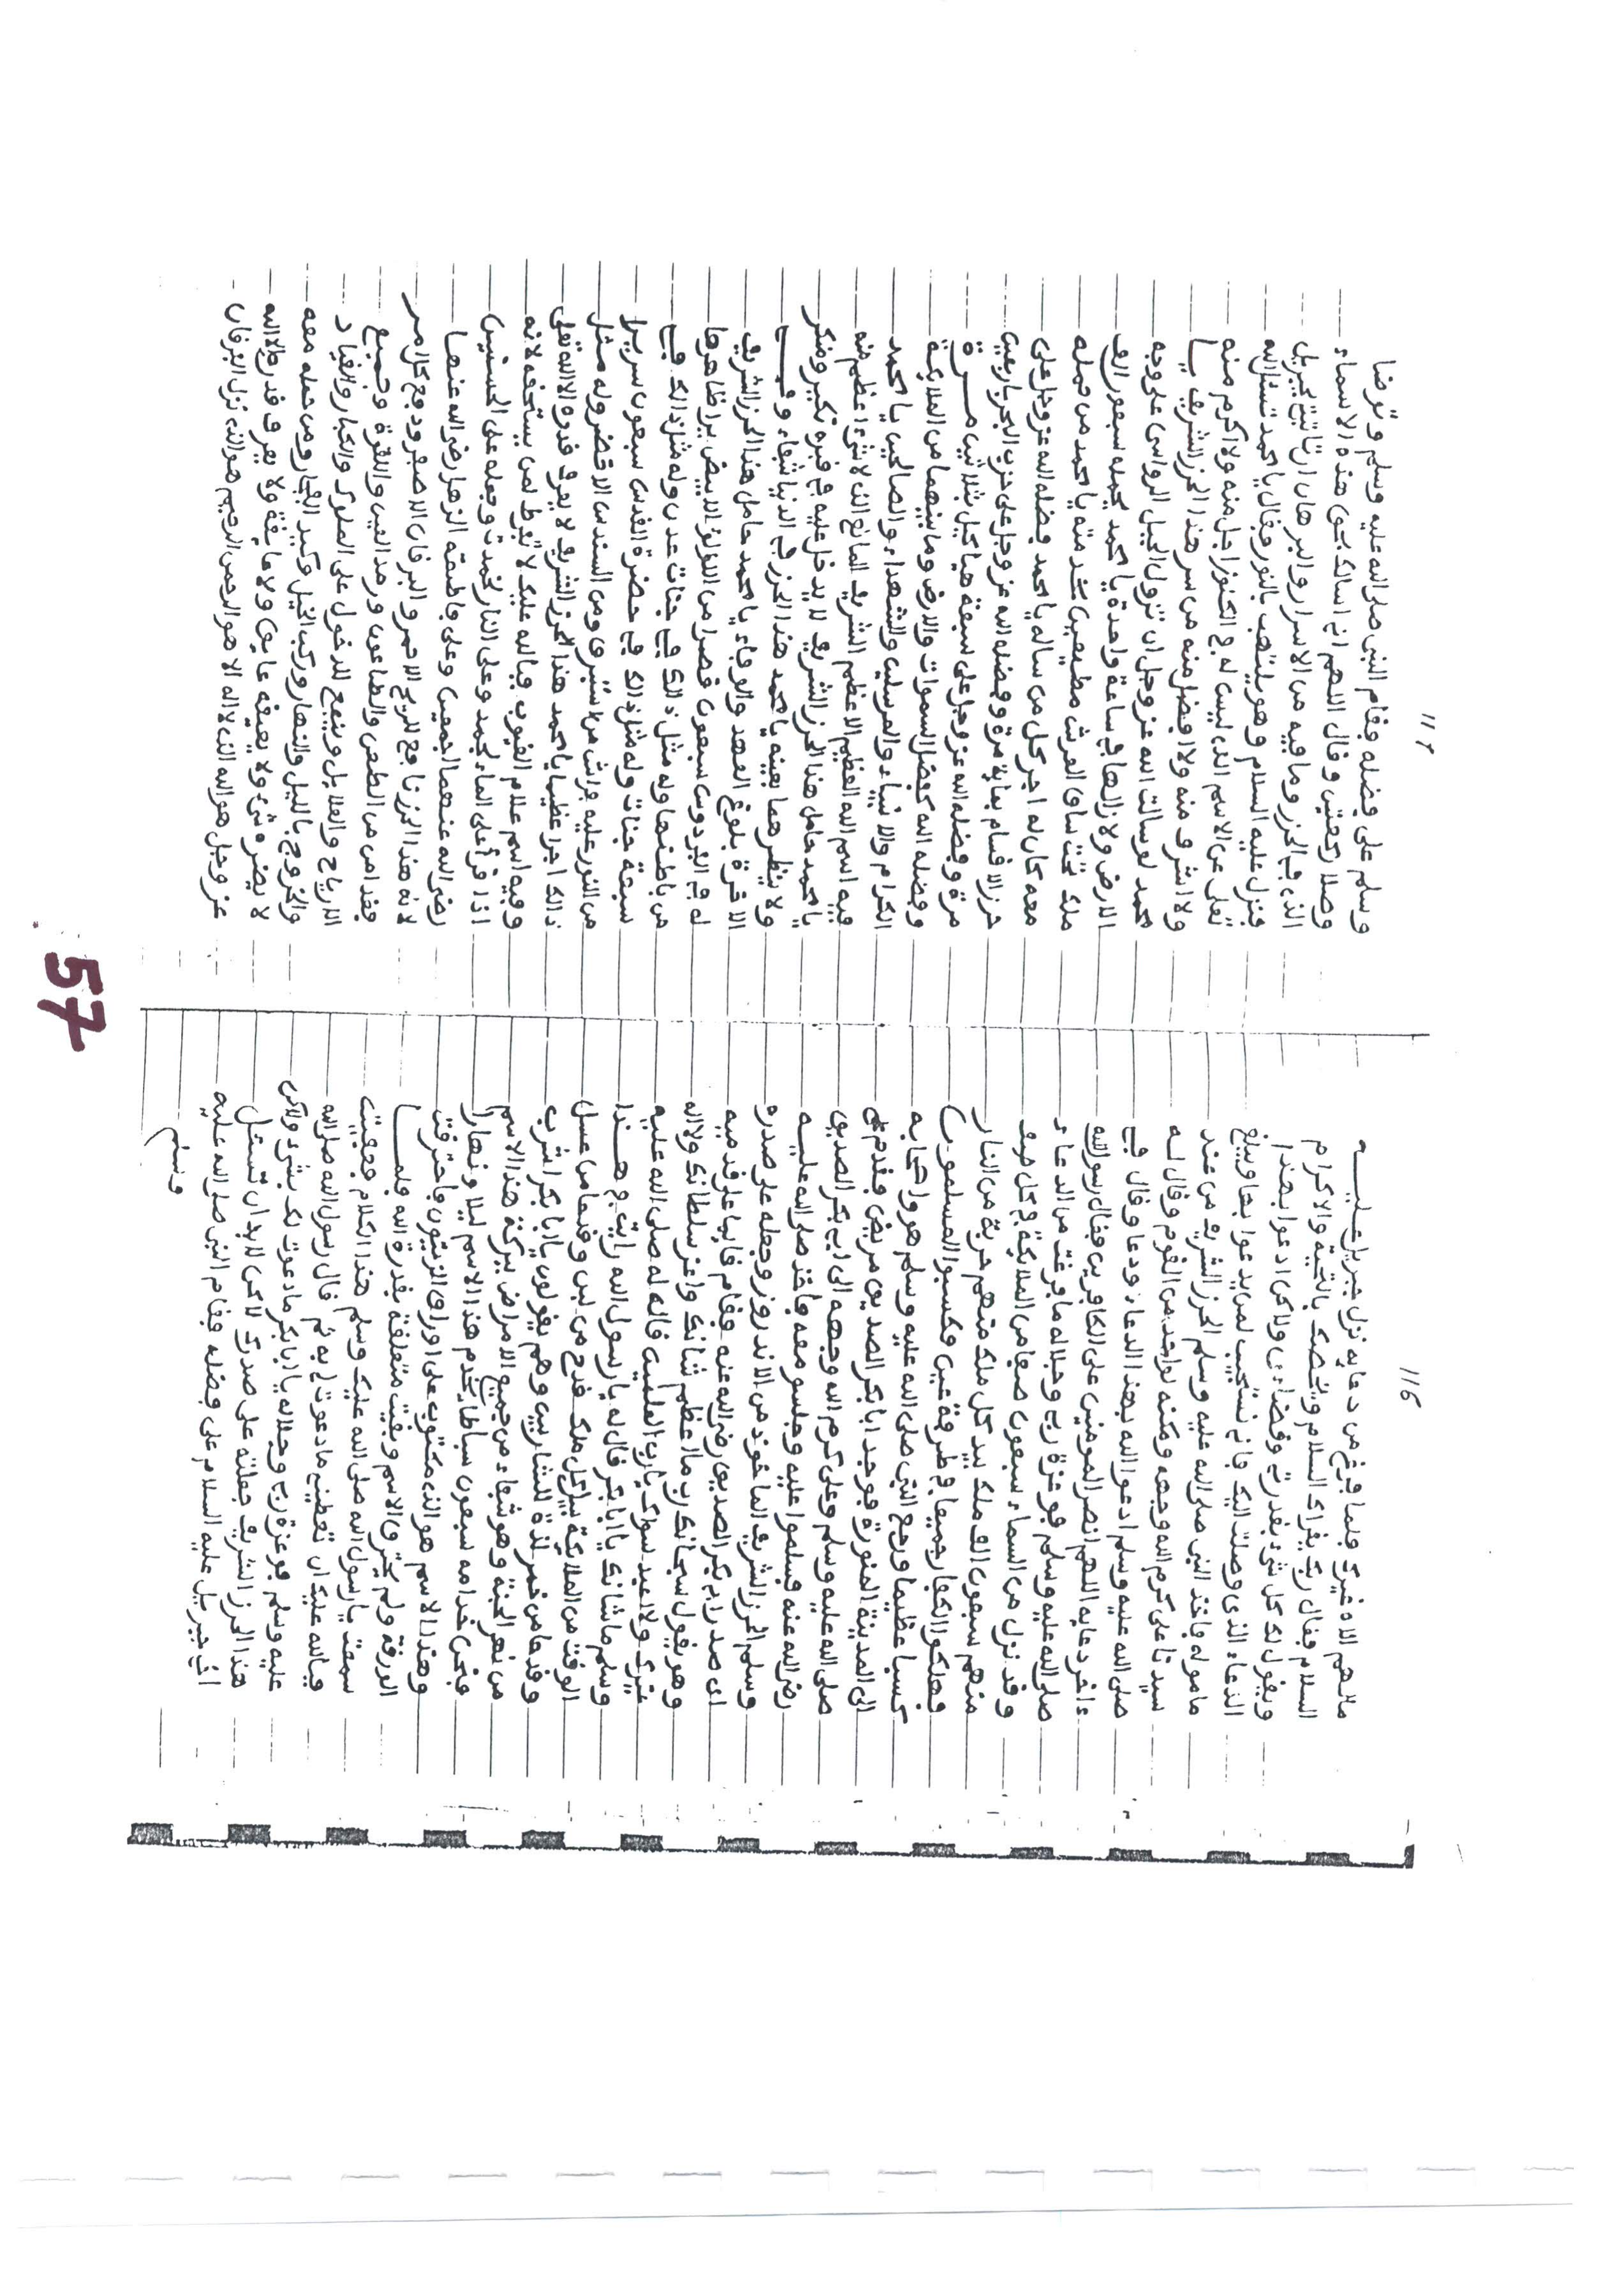 116
مالهم الاه غيرك فلما فرغ من دعايه نزل جبريل عليه
السلام فقال ربك يقراك السلام ويخصك بالتحية والاكرام
ويقول لك كل شئ بقدرتي وقضاءى ولاكن ادعوا بهذا
الدعاء الذى وصلت اليك فاني نستجيب لمن يدعوا بها ويبلغ
ماموله فاخذ النبي صلى الله عليه وسلم الحرز الشريف من عند
سيدنا على كرم الله وجهه ومكنه لواحد من القوم وقال له
صلى الله عليه وسلم ادعوا الله بهذا الدعاء ودعا وقال في
ءاخر دعايه اللهم انصر المومنين على الكافرين فقال رسول الله
صلى الله عليه وسلم فوعزة ربي وجلاله ما فرغت من الدعاء
وقد نزل من السماء سبعون صفا من الملايكة في كل صف
منهم سبعون الف ملك بيد كل ملك منهم حربة من النار
فهلكوا الكفار جميعا في طرفة عين فكسبوا المسلمون
كسبا عظيما ورجع النبي صلى الله عليه وسلم هو واصحابه
الى المدينة المنورة فوجد ابا بكر الصديق مريض فقدم
صلى الله عليه وسلم وعلى كرم الله وجهه الى ابي بكر الصديق
رضي الله عنه فسلموا عليه وجلسو معه فاخذ صلى الله عليه
وسلم الحرز الشريف الماخوذ من الاندروز وجعله على صدره
اى صدر ابي بكر الصديق رضي الله عنه فقام قايما على قدميه
وهو يقول سبحانك رب ما اعظم شانك واعز سلطانك ولا اله
غيرك ولا اعبد سواك يارب العلمين قال له صلى الله عليه
وسلم ما شانك يا ابا بكر قال له يا رسول الله رايت في هذا
الوقت من الملايكة بيد كل ملك قدح من لبن وقدحا من عسل
وقدحا من خمر لذة للشاربين وهم يقولون يا ابا بكر اشرب
من نهر الجنة وهو شفاء من جميع الامراض ببركة هذا الاسم
فنحن خدامه سبعون سباطا يخدم هذا الاسم ليلا ونهارا
وهذا الاسم هو الذى مكتوب على اوراق الزيتون فاحترقت
الورقة ولم يحترق الاسم وبقيت متعلقة بقدرة الله فلما
سمعت يارسول الله صلى الله عليك وسلم هذا الكلام
فبالله عليك ان تعطيني مادعوت لي به ثم قال رسول الله صلى الله
عليه وسلم فوعزة ربي وجلاله يا ابابكر مادعوت لك بشئ ولاكن
هذا الحرز الشريف جعلته على صدرك لاكن لابد ان
اخي جبريل عليه السلام على فضله فقام النبي صلى الله عليه
وسلم
117
وسلم على فضله فقام النبي صلى الله عليه وسلم وتوضا
وصلا ركعتين وقال اللهم اني اسالك بحق هذه الاسماء
الذى في الحرز وما فيه من الاسرار والبرهان ارياتيني جبريل
فنزل عليه السلام وهو يلتهب بالنور فقال يا محمد تسئل الله
تعلى عن الاسم الذى ليس له في الكنوز اجل منه ولا اكرم منه
ولا اشرف منه ولا افضل منه من سر هذا الحرز الشريف يا
محمد لو سالت الله عز وجل ان تزول الجبل الرواسى على وجه
الارض ولازالها في ساعة واحدة يا محمد يحمله سبعون الف
ملك تحت ساق العرش مطيعين بخدمته يا محمد من حمله
معه كان له اجر كل من ساله يا محمد فضله الله عز وجل على
حرز الاقسام بماية مرة وفضله الله عز وجل على حزب البحر باربعين
مرة وفضله الله عز وجل على سبعة هياكيل بثلاثين مرة
وفضله الله كفضل السموات والارض وما بينهما من الملايكة
الكرام والانبياء والمرسلين والشهداء والصالحين يا محمد
فيه اسم الله العظيم الاعظم الشريف المانع الذى لاشئ اعظم منه
يا محمد حامل هذا الحرز الشريف لا يدخل عليه في قبره نكير ومنكر
ولا ينظرهما بعينه يا محمد هذا الحرز في الدنيا شفاء وفي
الاخرة بلوغ العهد والوفاء يا محمد حامل هذا الحرز الشريف
له في الفردوس سبعون قصرا من اللؤلؤ الابيض يرا ظاهرها
من باطنها وله مثل ذالك في جنات عدن وله مثل ذالك في
سبعة جنات وله مثل ذالك في حضرة القدس سبعون سريرا
من النور عليه فرش من استبرق ومن السندس الاخضر وله مثل
ذالك اجرا عظيما يا محمد هذا الحرز الشريف لا يعرف قدره الا الله تعلى
وفيه اسم علام الغيوب فبالله عليك لا تفرط لمن يستحقه لانه
اذا قرأ على الماء لجمد وعلى النار لخمدت وجعله على الحسنين
رضي الله عنهما اجمعين وعلى فاطمة الزهرا رضي الله عنها
لانه هذا الحرز نافع للريح الاحمر والبرقان الاصفر ودفع كل امر
فقد امن من الطعن والطاعون ورمد العين والنقرة وجميع
الارياح والعلايل وينفع للدخول على الملوك والكبار والقياد
والخروج بالليل والنهار وركب الخيل وكيد الفجار ومن حمله معه
لا يضره شئ ولا يعيقه عايق ولا عايقة ولا يعرف قدره الا الله
عز وجل هو الله الذى لا اله الا هو الرحمن الرحيم هو الله نزل الفرقان
57